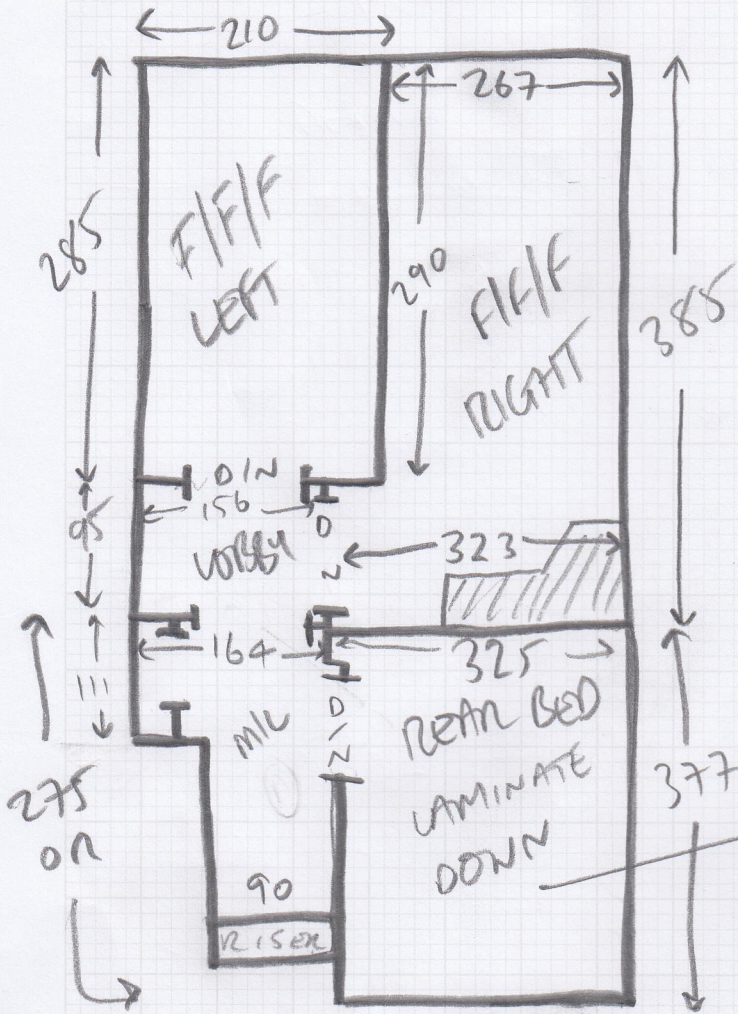 210
267
F/F/F
LEFT
285
290
F/F/F
RIGHT
385
D/N
156
95
LOBBY
D
N
323
164
325
111
M/L
D/N
REAR BED
LAMINATE
DOWN
275
OR
377
90
RISER